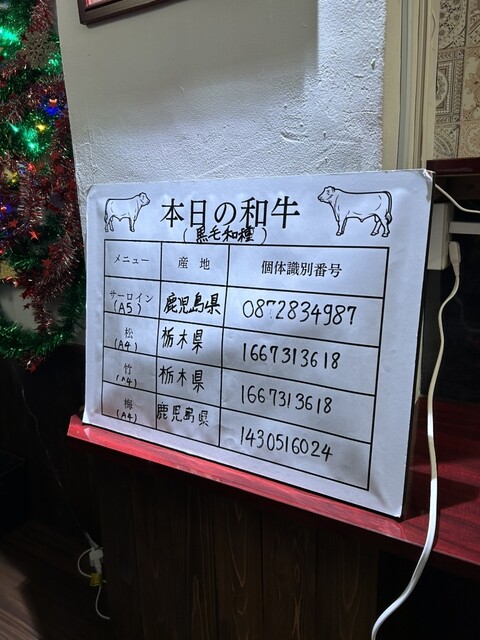 本日の和牛
(黒毛和種)
メニュー 産地 個体識別番号
サーロイン (A5) 鹿児島県 0872834987
松 (A4) 栃木県 1667313618
竹 (A4) 栃木県 1667313618
梅 (A4) 鹿児島県 1430516024